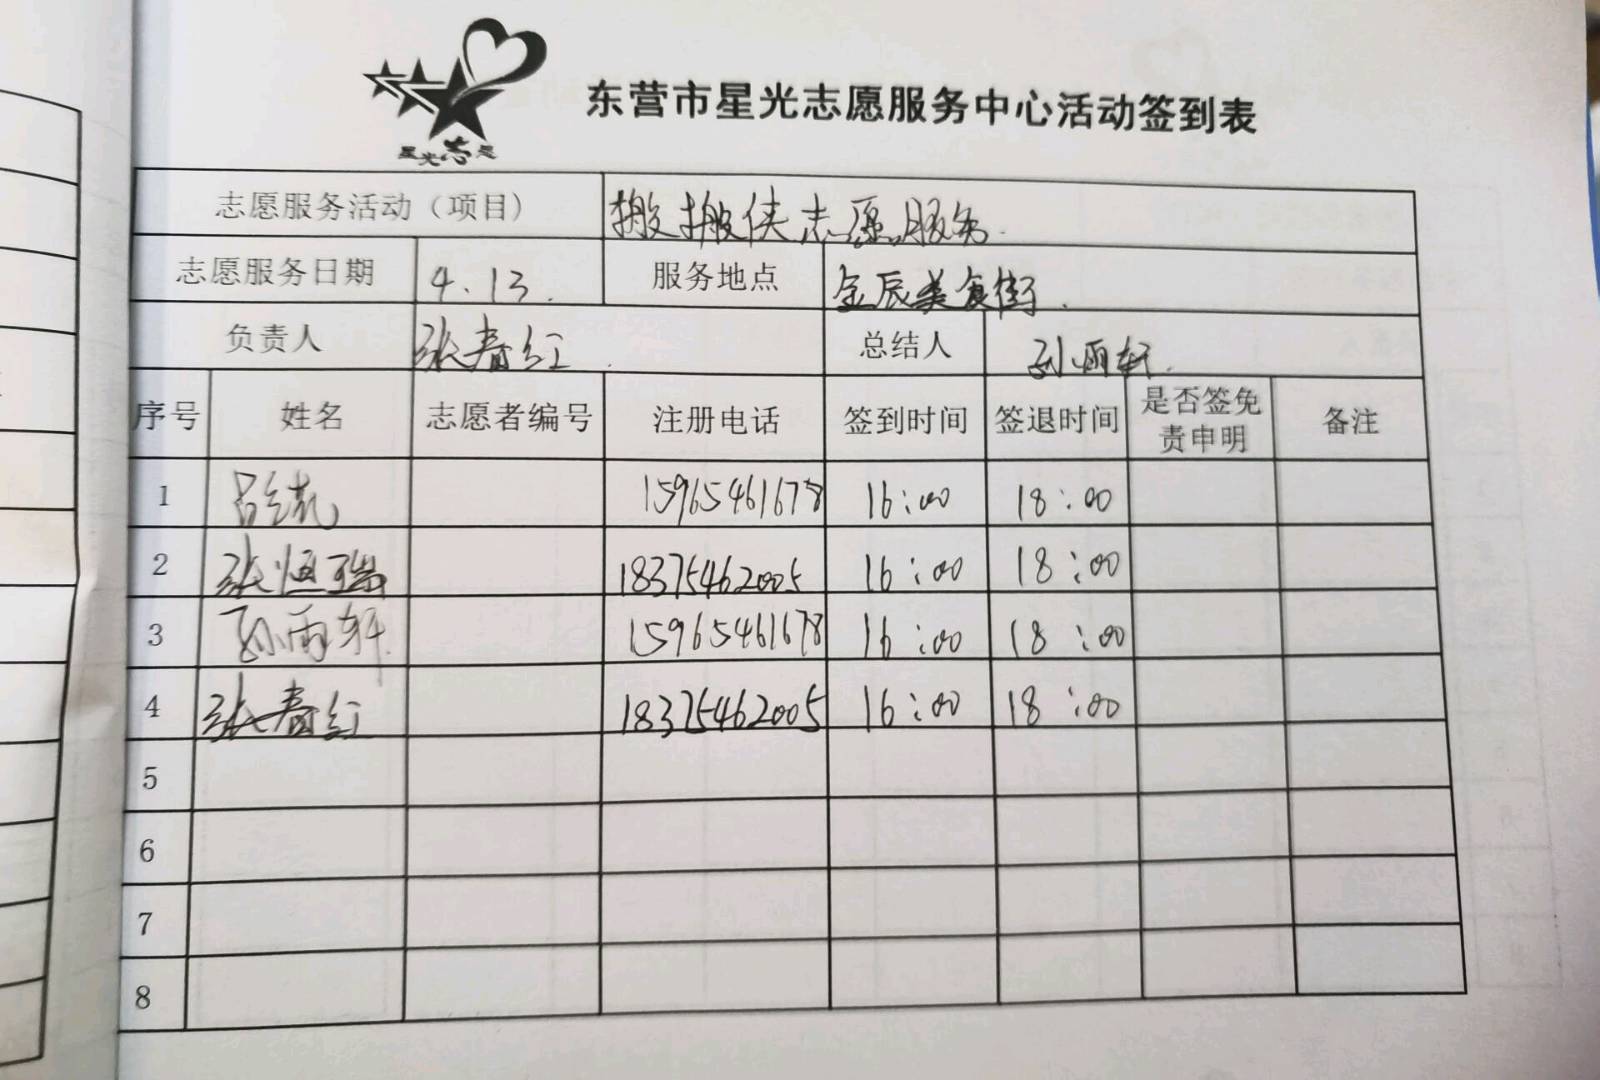 星光志愿
东营市星光志愿服务中心活动签到表
志愿服务活动（项目） 搬搬侠志愿服务.
志愿服务日期 4.13. 服务地点 金辰美食街.
负责人 张春红. 总结人 孙雨轩.
序号 姓名 志愿者编号 注册电话 签到时间 签退时间 是否签免责申明 备注
1 吕红凯 15965461678 16:00 18:00
2 张恒瑞 18375462005 16:00 18:00
3 孙雨轩. 15965461678 16:00 18:00
4 张春红 18375462005 16:00 18:00
5
6
7
8